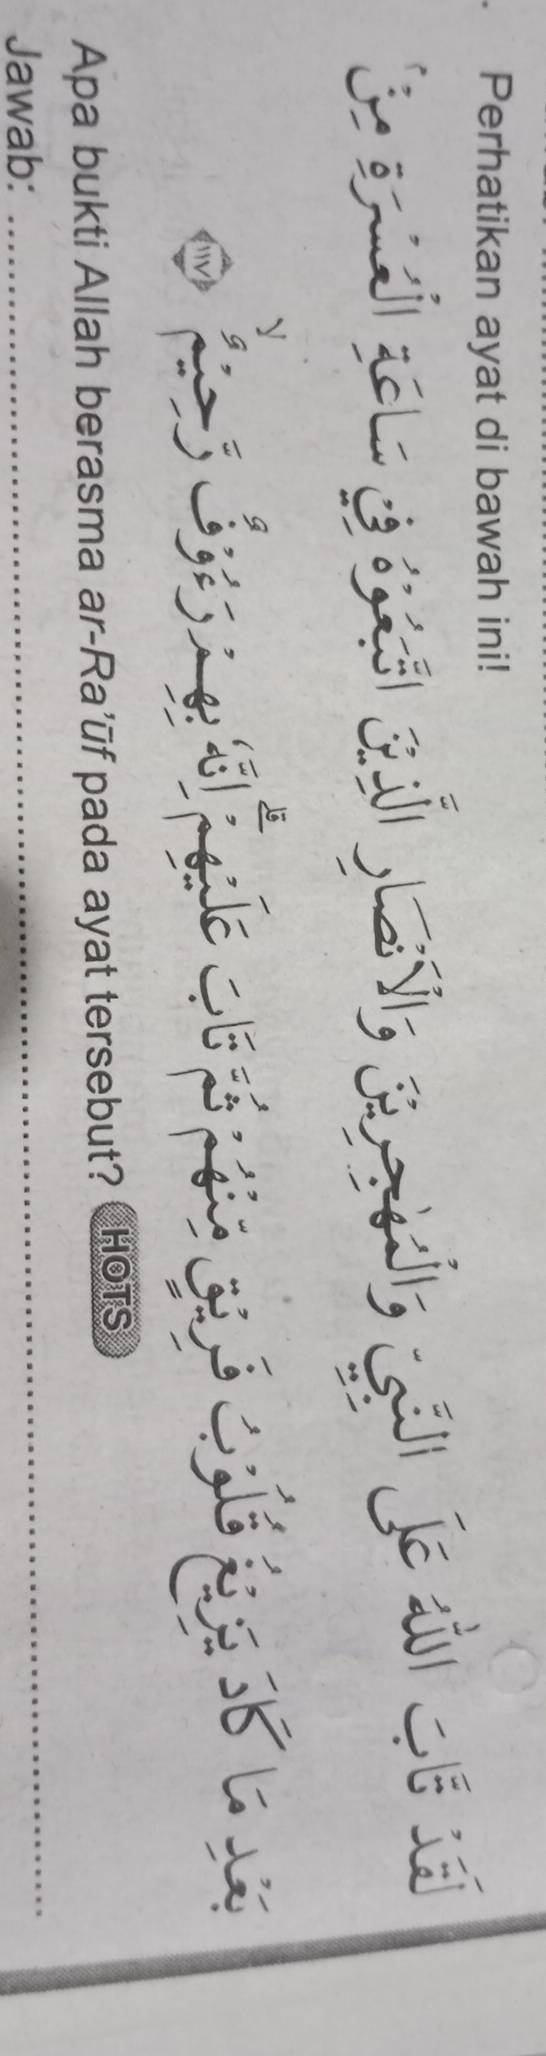 Perhatikan ayat di bawah ini!
لَقَدْ تَّابَ اللّٰهُ عَلَى النَّبِيِّ وَالْمُهٰجِرِيْنَ وَالْاَنْصَارِ الَّذِيْنَ اتَّبَعُوْهُ فِيْ سَاعَةِ الْعُسْرَةِ مِنْۢ
بَعْدِ مَا كَادَ يَزِيْغُ قُلُوْبُ فَرِيْقٍ مِّنْهُمْ ثُمَّ تَابَ عَلَيْهِمْۗ اِنَّهٗ بِهِمْ رَءُوْفٌ رَّحِيْمٌۙ ﴿١١٧﴾
Apa bukti Allah berasma ar-Ra'ūf pada ayat tersebut? HOTS
Jawab: